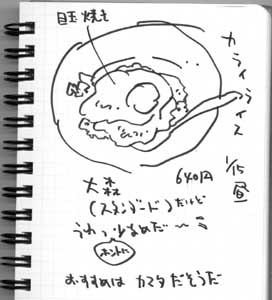 目玉焼き
カライライス
1/15
昼
大森
640円
(スタンダード)だけど
うわっ少なめだ〜
ホントに
おすすめは カマタ だそうだ